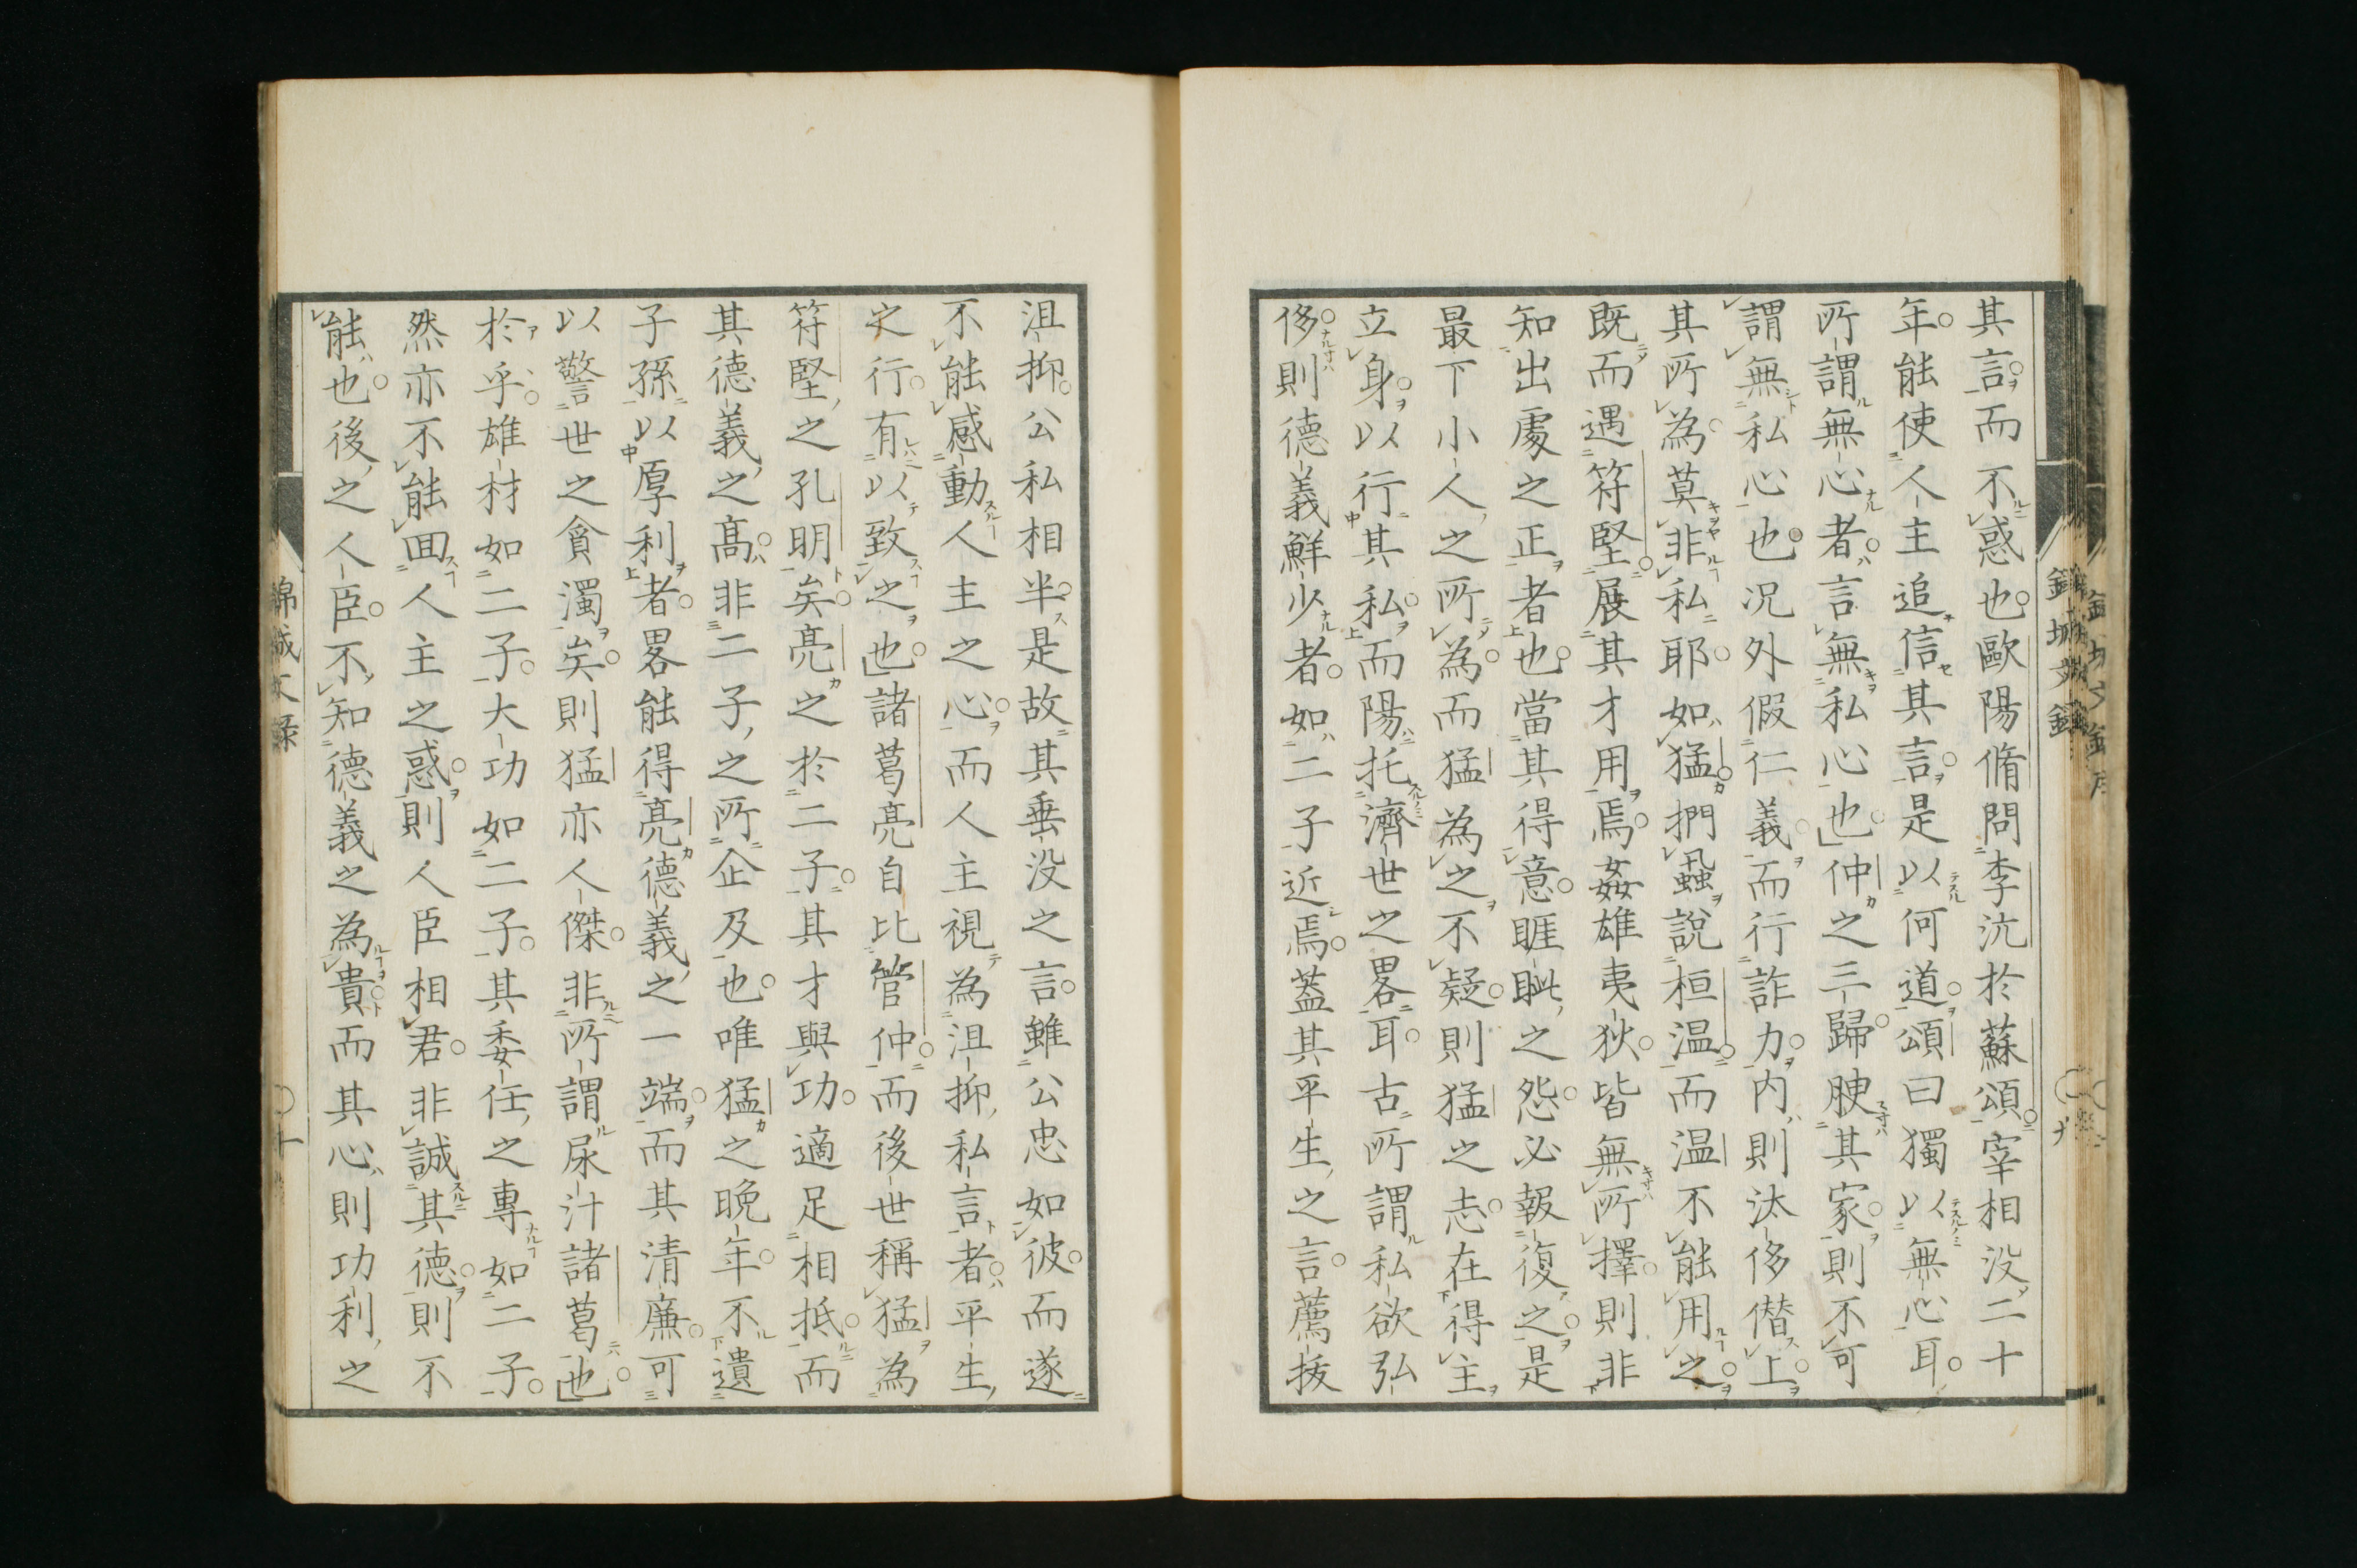 其言而不惑也歐陽脩問李沆於蘇頌宰相没二十
年能使人主追信其言是以何道頌曰獨以無心耳
所謂無心者言無私心也仲之三歸腴其家則不可
謂無私心也况外假仁義而行詐力内則汰侈僣上
其所為莫非私耶如猛捫蝨說桓温而温不能用之
既而遇符堅展其才用焉姦雄夷狄皆無所擇則非
知出處之正者也當其得意睚眦之怨必報復之是
最下小人之所為而猛為之不疑則猛之志在得主
立身以行其私而陽托濟世之畧耳古所謂私欲弘
侈則德義鮮少者如二子近焉蓋其平生之言薦拔
沮抑公私相半是故其垂没之言雖公忠如彼而遂
不能感動人主之心而人主視為沮抑私言者平生
之行有以致之也諸葛亮自比管仲而後世稱猛為
符堅之孔明矣亮之於二子其才與功適足相抵而
其德義之髙非二子之所企及也唯猛之晩年不遺
子孫以厚利者畧能得亮德義之一端而其清廉可
以警世之貪濁矣則猛亦人傑非所謂尿汁諸葛也
於乎雄材如二子大功如二子其委任之專如二子
然亦不能回人主之惑則人臣相君非誠其德則不
能也後之人臣不知德義之為貴而其心則功利之
錦城文録
十